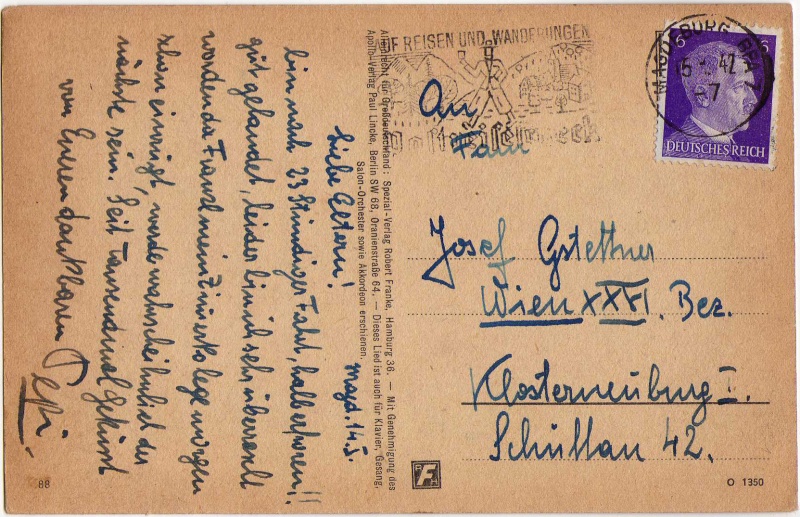 Magd. 14.I.
Liebe Eltern!
bin nach 23 Stündiger Fahrt, halb erfroren!!
gut gelandet, leider bin ich sehr überrascht
worden da Franzl mein Zimmerkollege morgen
schon einrückt, werde wahrscheinlich der
nächste sein. Seid Tausendmal geküsst
von Eueren dankbaren Pepi.
88
Alleinrecht für Großdeutschland: Spezial-Verlag Robert Franke, Hamburg 36. — Mit Genehmigung des
Apollo-Verlag Paul Lincke, Berlin SW 68, Oranienstraße 64. — Dieses Lied ist auch für Klavier, Gesang,
Salon-Orchester sowie Akkordeon erschienen.
AUF REISEN UND WANDERUNGEN
MAGDEBURG
42
6 6
DEUTSCHES REICH
An
Fam
Josef Gstettner
Wien XXVI. Bez.
Klosterneuburg I.
Schüttau 42.
F
O 1350